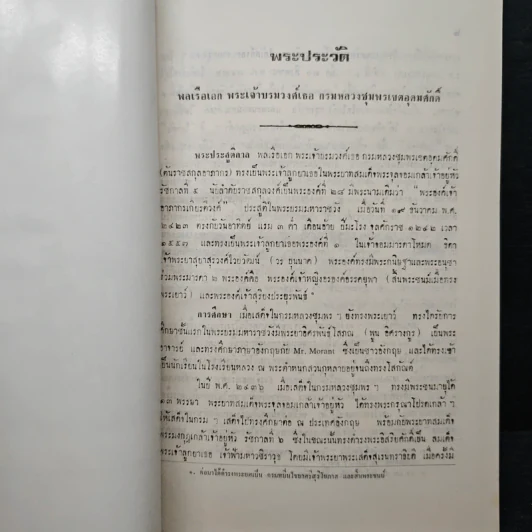 พระประวัติ
พลเรือเอก พระเจ้าบรมวงศ์เธอ กรมหลวงชุมพรเขตอุดมศักดิ์
พระประสูติกาล พลเรือเอก พระเจ้าบรมวงศ์เธอ กรมหลวงชุมพรเขตอุดมศักดิ์
(ต้นราชสกุลอาภากร) ทรงเป็นพระเจ้าลูกยาเธอในพระบาทสมเด็จพระจุลจอมเกล้าเจ้าอยู่หัว
รัชกาลที่ ๕ นับลำดับราชสกุลวงศ์เป็นพระองค์ที่ ๒๘ มีพระนามเดิมว่า "พระองค์เจ้า
อาภากรเกียรติวงศ์" ประสูติในพระบรมมหาราชวัง เมื่อวันที่ ๑๙ ธันวาคม พ.ศ.
๒๔๒๓ ตรงกับวันอาทิตย์ แรม ๓ ค่ำ เดือนอ้าย ปีมะโรง จุลศักราช ๑๒๔๒ เวลา
๑๕.๕๗ และทรงเป็นพระเจ้าลูกยาเธอพระองค์ที่ ๑ ในเจ้าจอมมารดาโหมด ธิดา
เจ้าพระยาสุรวงศ์ไวยวัฒน์ (วร บุนนาค) พระองค์ทรงมีพระกนิษฐาและพระอนุชา
ร่วมพระมารดา ๒ พระองค์คือ พระองค์เจ้าหญิงอรองค์อรรคยุพา (สิ้นพระชนม์เมื่อทรง
พระเยาว์) และพระองค์เจ้าสุริยงประยูรพันธุ์ ๑
การศึกษา เมื่อเสด็จในกรมหลวงชุมพร ฯ ยังทรงพระเยาว์ ทรงได้รับการ
ศึกษาชั้นแรกในพระบรมมหาราชวังมีพระยาอิศรพันธ์โสภณ (พูน อิศรางกูร) เป็นพระ
อาจารย์ และทรงศึกษาภาษาอังกฤษกับ Mr. Morant ซึ่งเป็นชาวอังกฤษ และได้ทรงเข้า
เป็นนักเรียนในโรงเรียนหลวง ณ พระตำหนักสวนกุหลาบอยู่จนถึงทรงโสกันต์
ในปี พ.ศ. ๒๔๓๖ เมื่อเสด็จในกรมหลวงชุมพร ฯ ทรงมีพระชนมายุได้
๑๓ พรรษา พระบาทสมเด็จพระจุลจอมเกล้าเจ้าอยู่หัว ได้ทรงพระกรุณาโปรดเกล้า ฯ
ให้เสด็จในกรม ฯ เสด็จไปทรงศึกษาต่อ ณ ประเทศอังกฤษ พร้อมกับพระบาทสมเด็จ
พระมงกุฎเกล้าเจ้าอยู่หัว รัชกาลที่ ๖ ซึ่งในขณะนั้นทรงดำรงพระอิสริยศักดิ์เป็น สมเด็จ
พระเจ้าลูกยาเธอ เจ้าฟ้ามหาวชิราวุธ โดยมีเจ้าพระยาพระเสด็จสุเรนทราธิบดี เมื่อครั้งมี
๑. ต่อมาได้ดำรงพระยศเป็น กรมหมื่นไชยาศรีสุริโยภาส และสิ้นพระชนม์